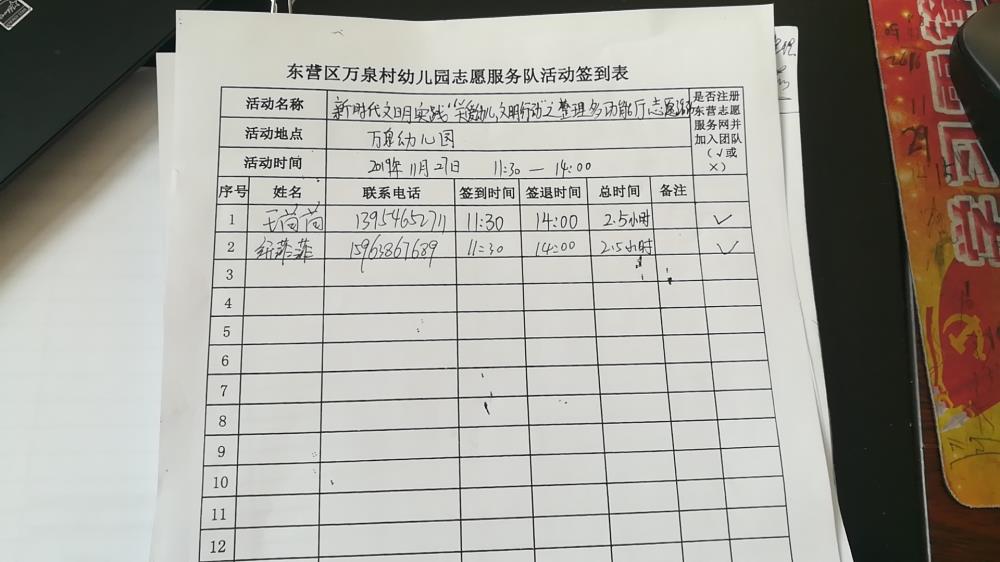 东营区万泉村幼儿园志愿服务队活动签到表
活动名称 新时代文明实践“关爱幼儿,文明行动”之整理多功能厅志愿活动
是否注册东营志愿服务网并加入团队(√或×)
活动地点 万泉幼儿园
活动时间 2019年11月27日 11:30—14:00
序号 姓名 联系电话 签到时间 签退时间 总时间 备注
1 王苘苘 13954652711 11:30 14:00 2.5小时 ✓
2 纪菲菲 15963867689 11:30 14:00 2.5小时 ✓
3
4
5
6
7
8
9
10
11
12